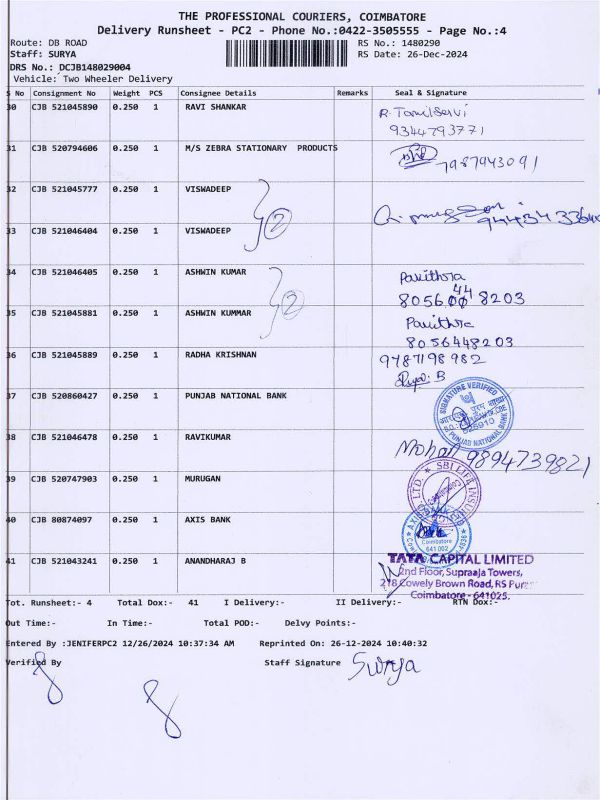 THE PROFESSIONAL COURIERS, COIMBATORE
Delivery Runsheet - PC2 - Phone No.:0422-3505555 - Page No.:4
Route: DB ROAD
Staff: SURYA
RS No.: 1480290
RS Date: 26-Dec-2024
DRS No.: DCJB148029004
Vehicle: Two Wheeler Delivery
S No Consignment No Weight PCS Consignee Details Remarks Seal & Signature
30 CJB 521045890 0.250 1 RAVI SHANKAR
R. TamilSelvi
9344793771
31 CJB 520794606 0.250 1 M/S ZEBRA STATIONARY PRODUCTS
7987943091
32 CJB 521045777 0.250 1 VISWADEEP
2
33 CJB 521046404 0.250 1 VISWADEEP
34 CJB 521046405 0.250 1 ASHWIN KUMAR
Pavithra
8056448203
2
35 CJB 521045881 0.250 1 ASHWIN KUMMAR
Pavithra
8056448203
36 CJB 521045889 0.250 1 RADHA KRISHNAN
9787198982
37 CJB 520860427 0.250 1 PUNJAB NATIONAL BANK
SIGNATURE VERIFIED
PUNJAB NATIONAL BANK
38 CJB 521046478 0.250 1 RAVIKUMAR
Mohan 9894739821
39 CJB 520747903 0.250 1 MURUGAN
SBI LIFE INSU
LTD
40 CJB 80874097 0.250 1 AXIS BANK
AXIS BANK LTD
Coimbatore
641 002
41 CJB 521043241 0.250 1 ANANDHARAJ B
TATA CAPITAL LIMITED
2nd Floor, Supraaja Towers,
218 Cowely Brown Road, RS Puram
Coimbatore - 641025.
Tot. Runsheet:- 4 Total Dox:- 41 I Delivery:- II Delivery:- RTN Dox:-
Out Time:- In Time:- Total POD:- Delvy Points:-
Entered By :JENIFERPC2 12/26/2024 10:37:34 AM Reprinted On: 26-12-2024 10:40:32
Verified By Staff Signature Surya